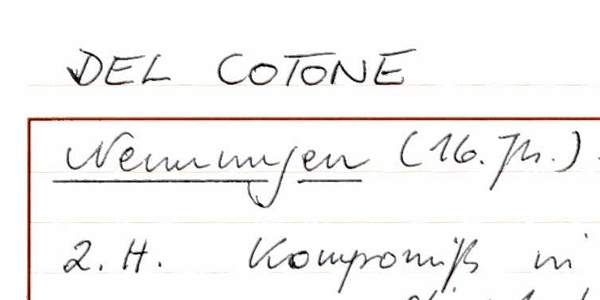 DEL COTONE
Nennungen (16. Jh.)
2. H. Kompromiß in